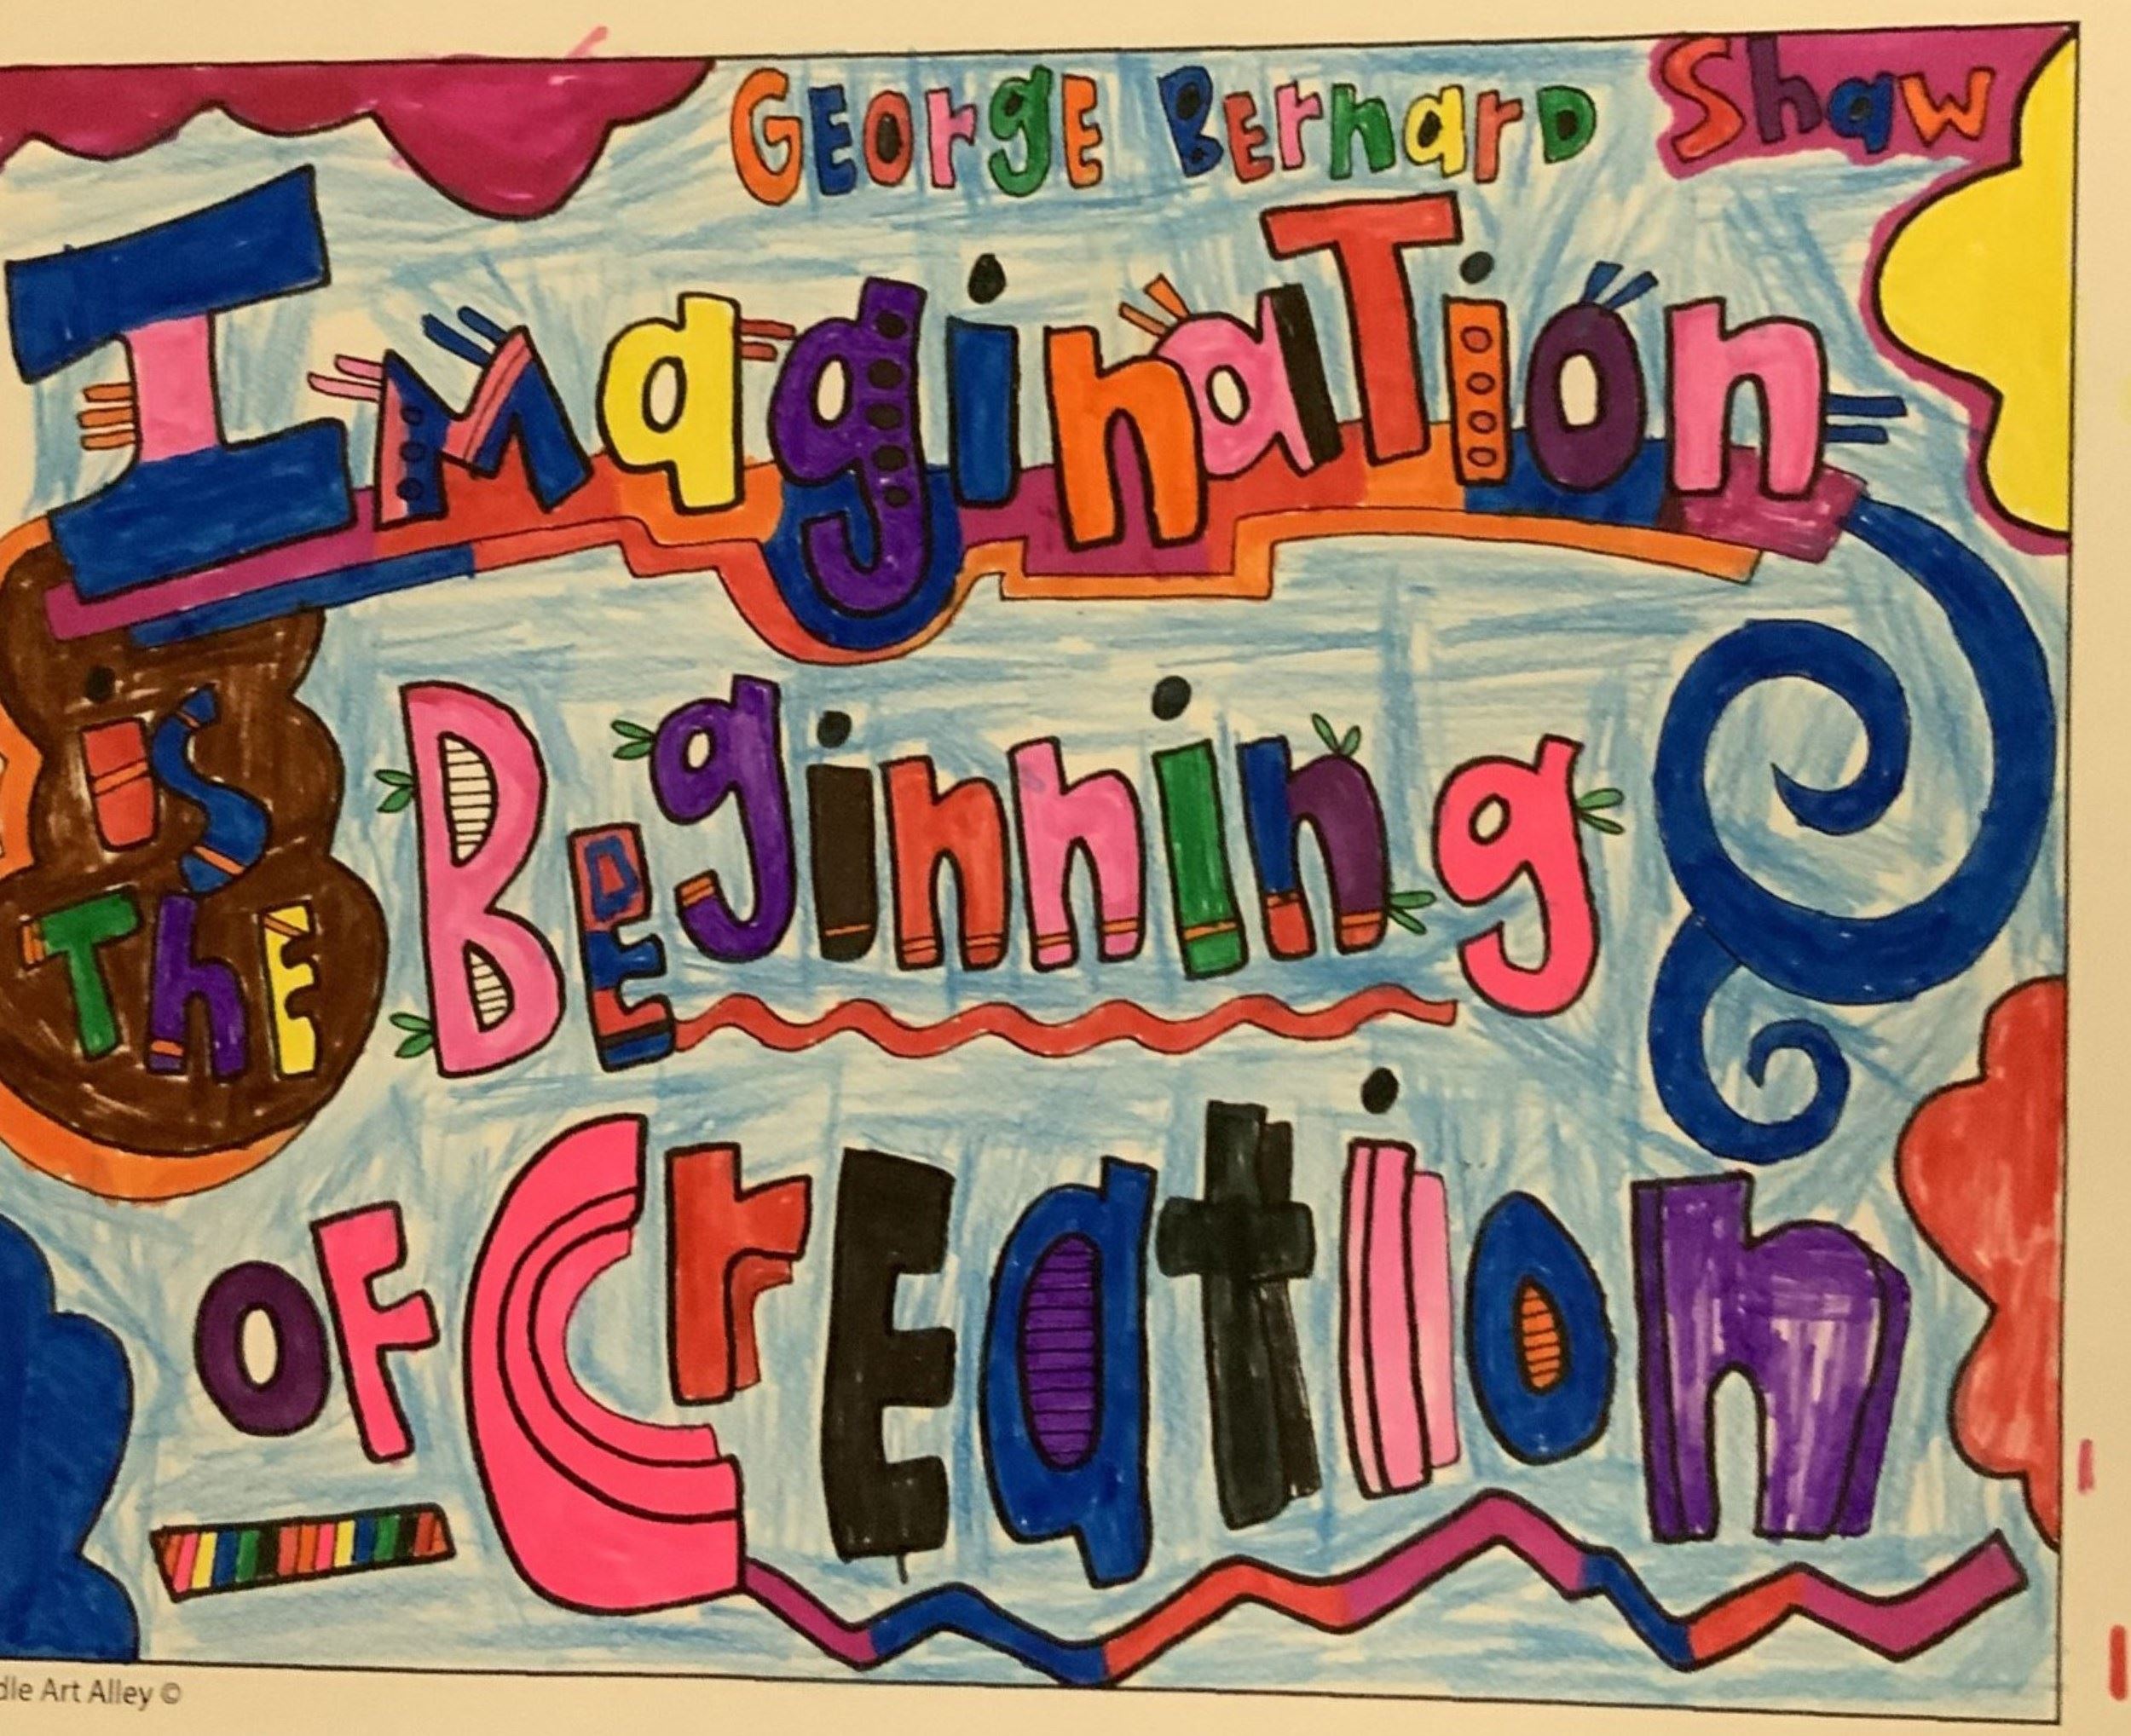 GEorgE BErnarD Shaw
ImaginaTion
is
ThE
BEginning
oF CrEation
dle Art Alley ©